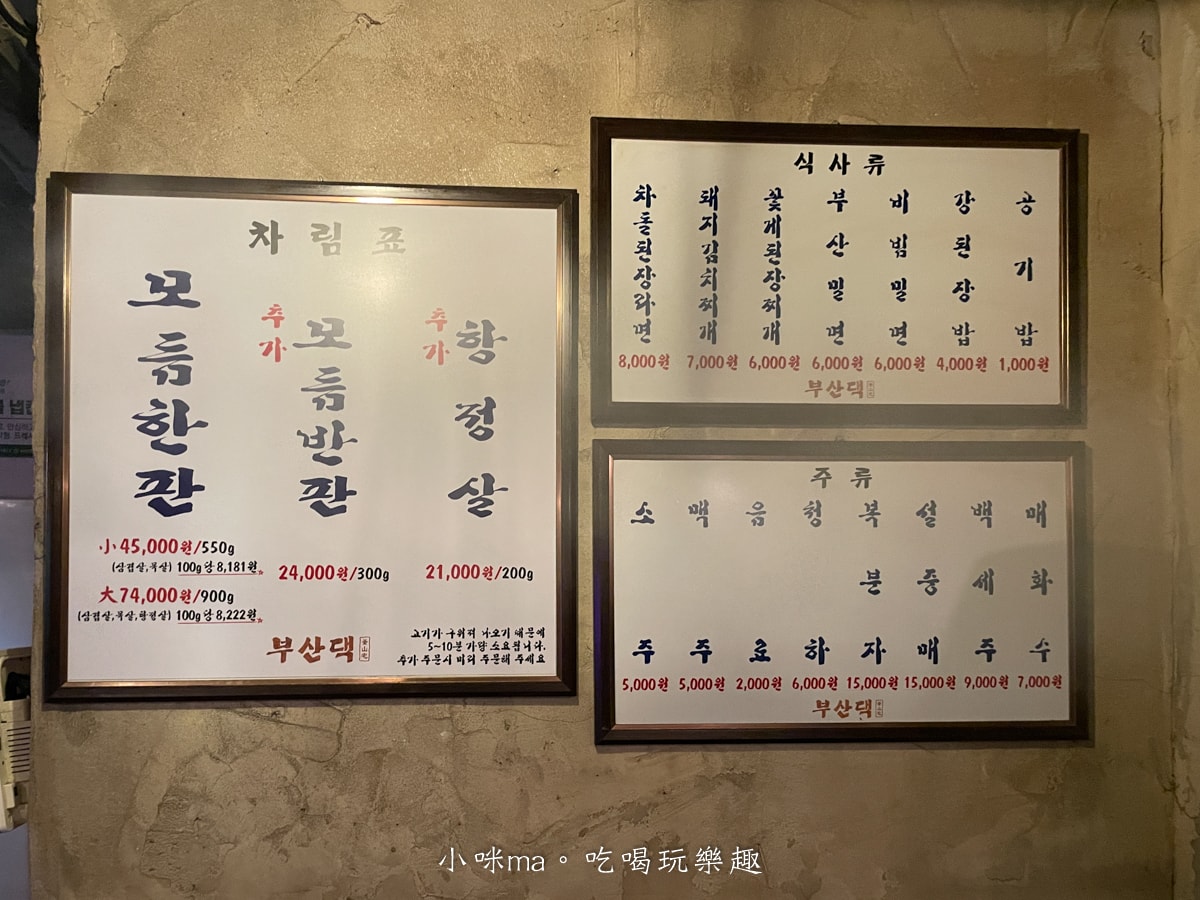 차림표
모듬한판
小 45,000원/550g
(삼겹살,목살) 100g당 8,181원
大 74,000원/900g
(삼겹살,목살,항정살) 100g당 8,222원
추가
모듬반판
24,000원/300g
추가
항정살
21,000원/200g
고기가 구워져 나오기 때문에
5~10분가량 소요됩니다.
추가 주문시 미리 주문해 주세요
부산댁
식사류
차돌된장라면
8,000원
돼지김치찌개
7,000원
꽃게된장찌개
6,000원
부산밀면
6,000원
비빔밀면
6,000원
강된장밥
4,000원
공기밥
1,000원
부산댁
주류
소주
5,000원
맥주
5,000원
음료
2,000원
청하
6,000원
복분자
15,000원
설중매
15,000원
백세주
9,000원
매화수
7,000원
부산댁
小咪ma。吃喝玩樂趣